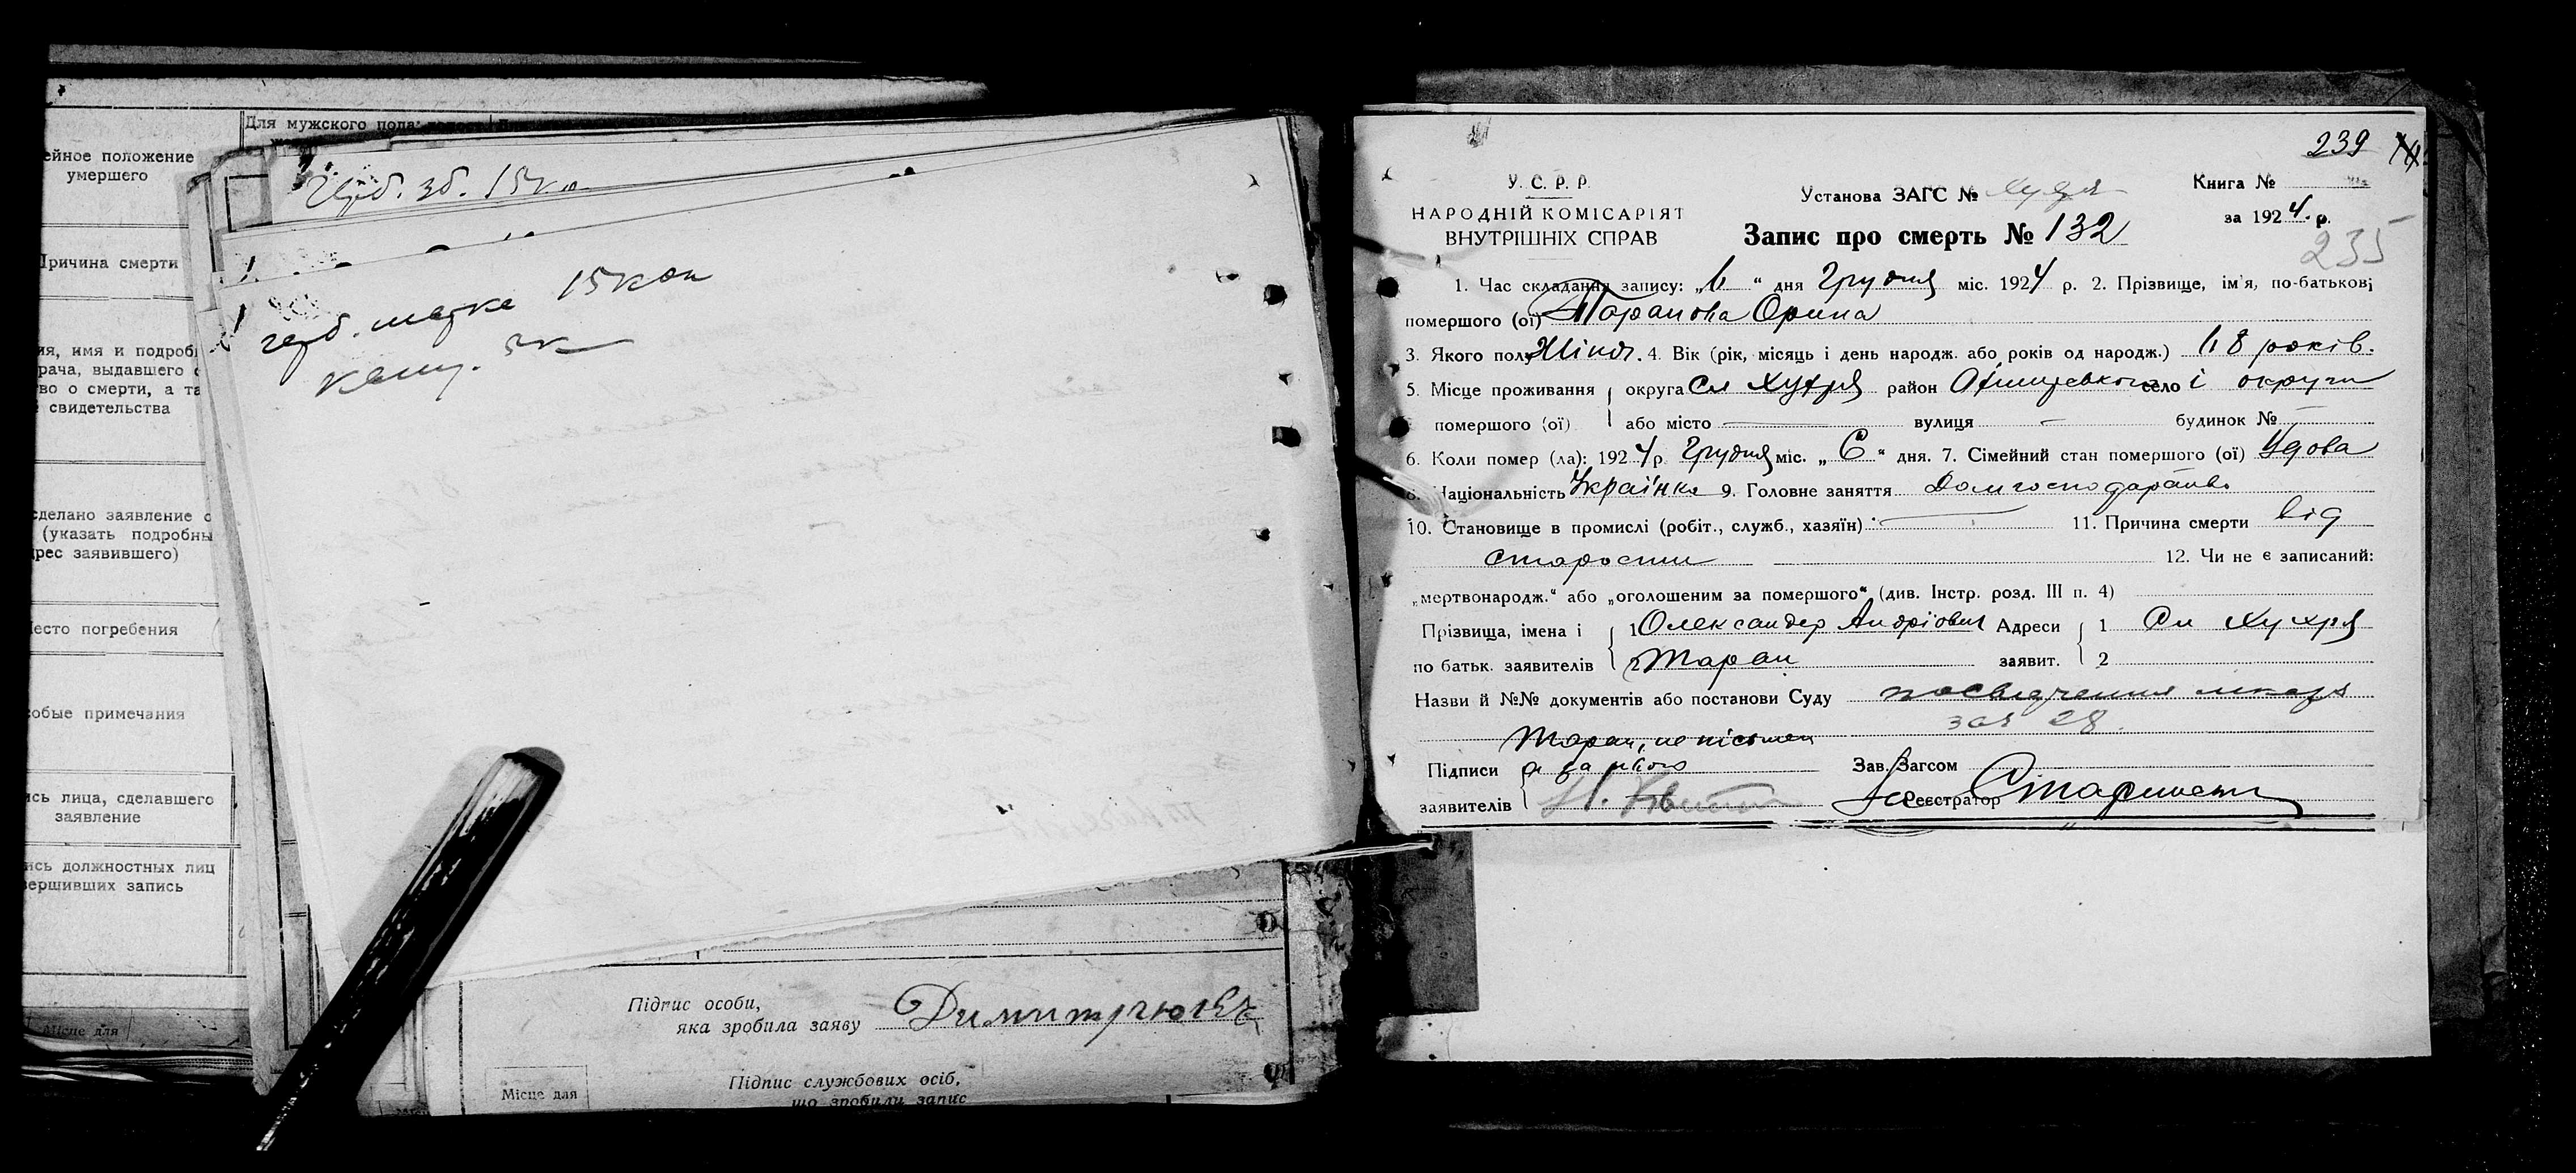 Для мужского пола:
ейное положение
умершего
Причина смерти
ия, имя и подроб
рача, выдавшего
во о смерти, а та
свидетельства
сделано заявление о
(указать подробны
рес заявившего)
есто погребения
собые примечания
ись лица, сделавшего
заявление
ись должностных лиц
вершивших запись
Місце для
Герб. зб. 15 ко
герб. марка 15 коп
канц. 5к
Підпис особи,
яка зробила заяву
Підпис службових осіб,
що зробили запис
Місце для
239
У. С. Р. Р.
НАРОДНІЙ КОМІСАРІЯТ
ВНУТРІШНІХ СПРАВ
Установа ЗАГС №
Книга №
за 1924. р.
235
Запис про смерть № 132
1. Час складання запису: „ “ дня Грудня міс. 1924 р. 2. Прізвище, ім'я, по-батькові
помершого (ої) Таранова Орина
3. Якого полу Жіноч. 4. Вік (рік, місяць і день народж. або років од народж.) 68 років.
5. Місце проживання округа Сл Хухря район село і округи
помершого (ої) або місто — вулиця — будинок № —
6. Коли помер (ла): 1924 р. Грудня міс. „ 6 “ дня. 7. Сімейний стан помершого (ої) Удова
8. Національність Українка 9. Головне заняття Домгосподарство
10. Становище в промислі (робіт., служб., хазяїн) — 11. Причина смерти від
старости 12. Чи не є записаний:
„мертвонародж.“ або „оголошеним за помершого“ (див. Інстр. розд. III п. 4)
Прізвища, імена і 1 Олександер Андріович Адреси 1 Сл Хухря
по батьк. заявителів 2 Таран заявит. 2
Назви й №№ документів або постанови Суду посвідчення лікаря
за № 28.
Таран, не пісьмен
Підписи а за нього Зав. Загсом
заявителів Реєстратор